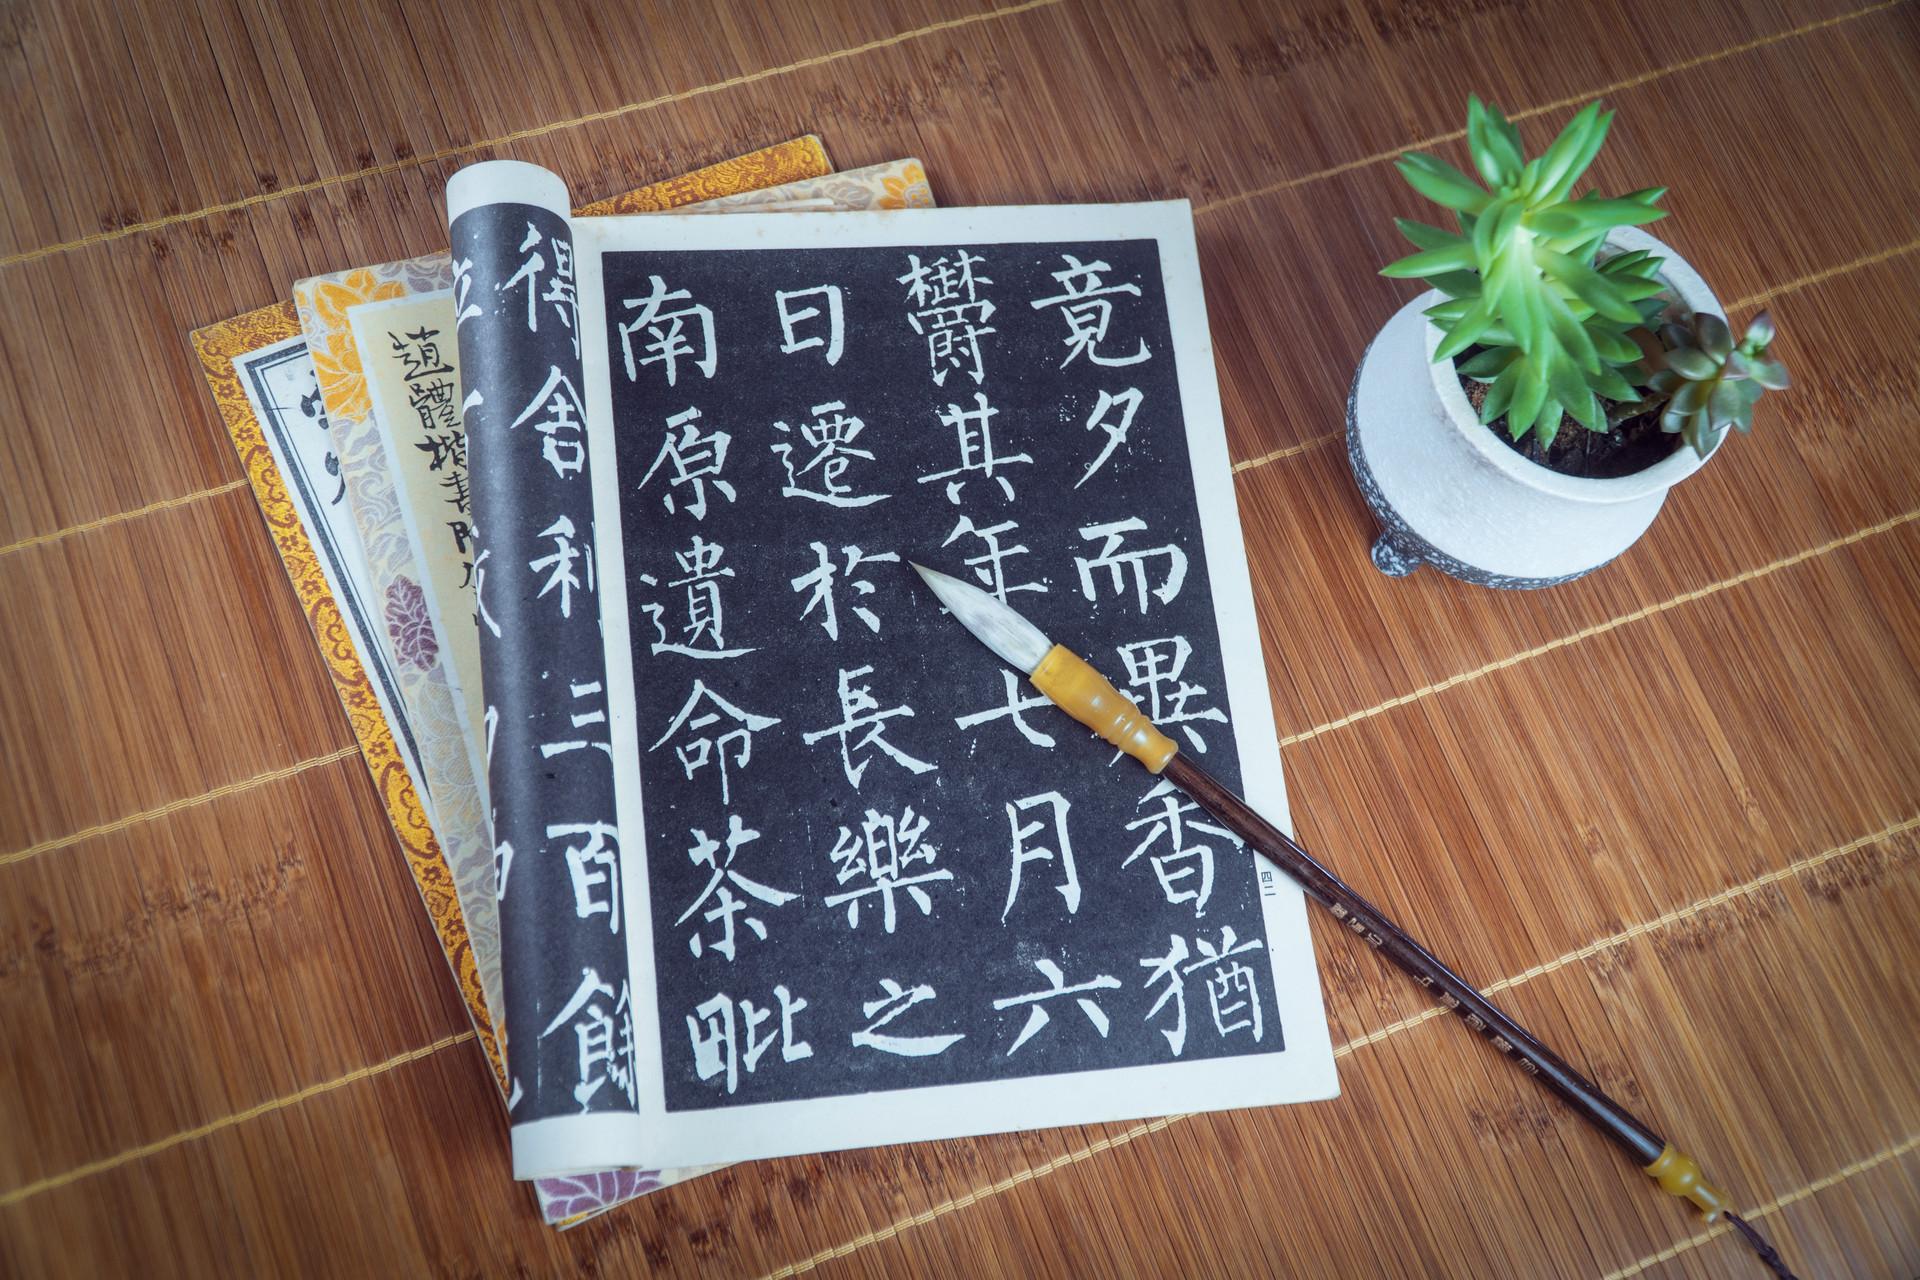 竟夕而異香猶
欝其年七月六
日遷於長樂之
南原遺命茶毗
四二
得舍利三百餘
趙體楷書